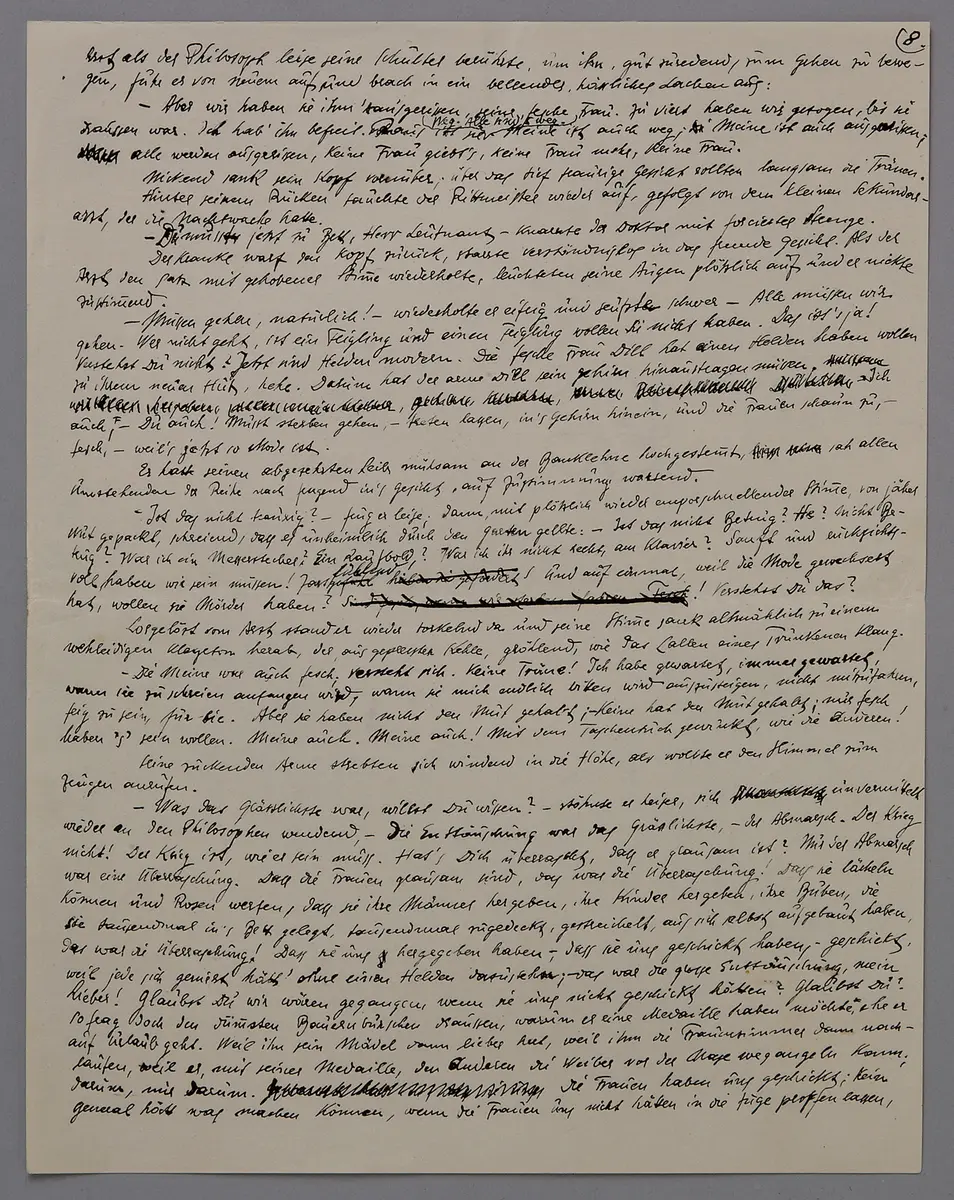 8.
Erst als der Philosoph leise seine Schulter berührte, um ihn, gut zuredend, zum Gehen zu bewe-
gen, fuhr es von neuem auf, und brach in ein bellendes, hässliches Lachen aus:
– Aber wir haben sie ihm 'rausgerissen, seine Frau. Zu viert haben wir gezogen, bis sie
draussen war. Ich hab' ihn befreit. Weg. Alle sind weg. Meine ist auch weg; Meine ist auch ausgerissen,
alle werden ausgerissen, Keine Frau giebt's, keine Frau mehr, Keine Frau.
Nickend sank sein Kopf vornüber; über das tief traurige Gesicht rollten langsam die Tränen.
Hinter seinem Rücken tauchte der Rittmeister wieder auf, gefolgt von dem kleinen Sekundar-
arzt, der die Nachtwache hatte.
– Du musst jetzt zu Bett, Herr Leutnant – knarrte der Doktor mit forcierter Strenge.
Der Kranke warf den Kopf zurück, starrte verständnislos in das fremde Gesicht. Als der
Arzt den Satz mit gehobener Stimme wiederholte, leuchteten seine Augen plötzlich auf und er nickte
zustimmend.
– Müssen gehen, natürlich! – wiederholte er eifrig und seufzte schwer – Alle müssen wir
gehen. Wer nicht geht, ist ein Feigling und einen Feigling wollen Sie nicht haben. Das ist's ja!
Verstehst Du nicht? Jetzt sind Helden modern. Die fesche Frau Dill hat einen Helden haben wollen
zu ihrem neuen Hut, hehe. Darum hat der arme Dill sein Gehirn hinaustragen müssen,
Ich
auch, – Du auch! Musst sterben gehen, – treten lassen, in's Gehirn hinein, und die Frauen schaun zu, –
fesch, – weil's jetzt so Mode ist.
Er hatte seinen abgezehrten Leib mühsam an der Banklehne hochgestemmt, sah allen
Umstehenden der Reihe nach fragend in's Gesicht, auf Zustimmung wartend.
– Ist das nicht traurig? – frug er leise. Dann, mit plötzlich wieder emporschnellender Stimme, von jäher
Wut gepackt, schreiend, dass es unheimlich durch den Garten gellte: – Ist das nicht Betrug? He? Nicht Be-
trug? War ich ein Messerstecher? Ein Raufbold? War ich ihr nicht recht, am Klavier? Sanft und rücksichts-
voll haben wir sein müssen! Zartfühlend! Und auf einmal, weil die Mode gewechselt
hat, wollen sie Mörder haben? Verstehst Du das?
Losgelöst vom Arzt stand er wieder torkelnd da und seine Stimme sank allmählich zu einem
wehleidigen Klageton herab, der aus gepresster Kehle, gröhlend, wie das Lallen eines Trunkenen klang.
– Die Meine war auch fesch, versteht sich. Keine Träne! Ich habe gewartet, immer gewartet,
wann sie zu schreien anfangen wird, wann sie mich endlich bitten wird auszusteigen, nicht mitzufahren,
feig zu sein, für Sie. Aber sie haben nicht den Mut gehabt; – Keine hat den Mut gehabt; nur fesch
haben's sein wollen. Meine auch. Meine auch! Mit dem Taschentuch gewinkt, wie die Anderen!
Seine zuckenden Arme streckten sich windend in die Höhe, als wollte er den Himmel zum
Zeugen anrufen.
– Was das Grässlichste war, willst Du wissen? – stöhnte er leise, sich unvermittelt
wieder an den Philosophen wendend, – Die Enttäuschung war das Grässlichste, – der Abmarsch. Der Krieg
nicht! Der Krieg ist, wie er sein muss. Hat's Dich überrascht, dass er grausam ist? Nur der Abmarsch
war eine Überraschung. Dass die Frauen grausam sind, das war die Überraschung! Dass sie lächeln
können und Rosen werfen, dass sie ihre Männer hergeben, ihre Kinder hergeben, ihre Buben, die
sie tausendmal in's Bett gelegt, tausendmal zugedeckt, gestreichelt, aus sich selbst aufgebaut haben,
das war die Überraschung! Dass sie uns hergegeben haben – dass sie uns geschickt haben, – geschickt,
weil jede sich geniert hätt' ohne einen Helden dazustehn; – das war die grosse Enttäuschung, mein
Lieber! Glaubst Du wir wären gegangen, wenn sie uns nicht geschickt hätten? Glaubst Du?
So frag doch den dümmsten Bauernburschen draussen, warum er eine Medaille haben möchte, ehe er
auf Urlaub geht. Weil ihn sein Mädel dann lieber hat, weil ihm die Frauenzimmer dann nach-
laufen, weil er, mit seiner Medaille, den Anderen die Weiber vor der Nase wegangeln kann,
darum, nur darum. Die Frauen haben uns geschickt; Kein
General hätt was machen können, wenn die Frauen uns nicht hätten in die Züge pfropfen lassen,